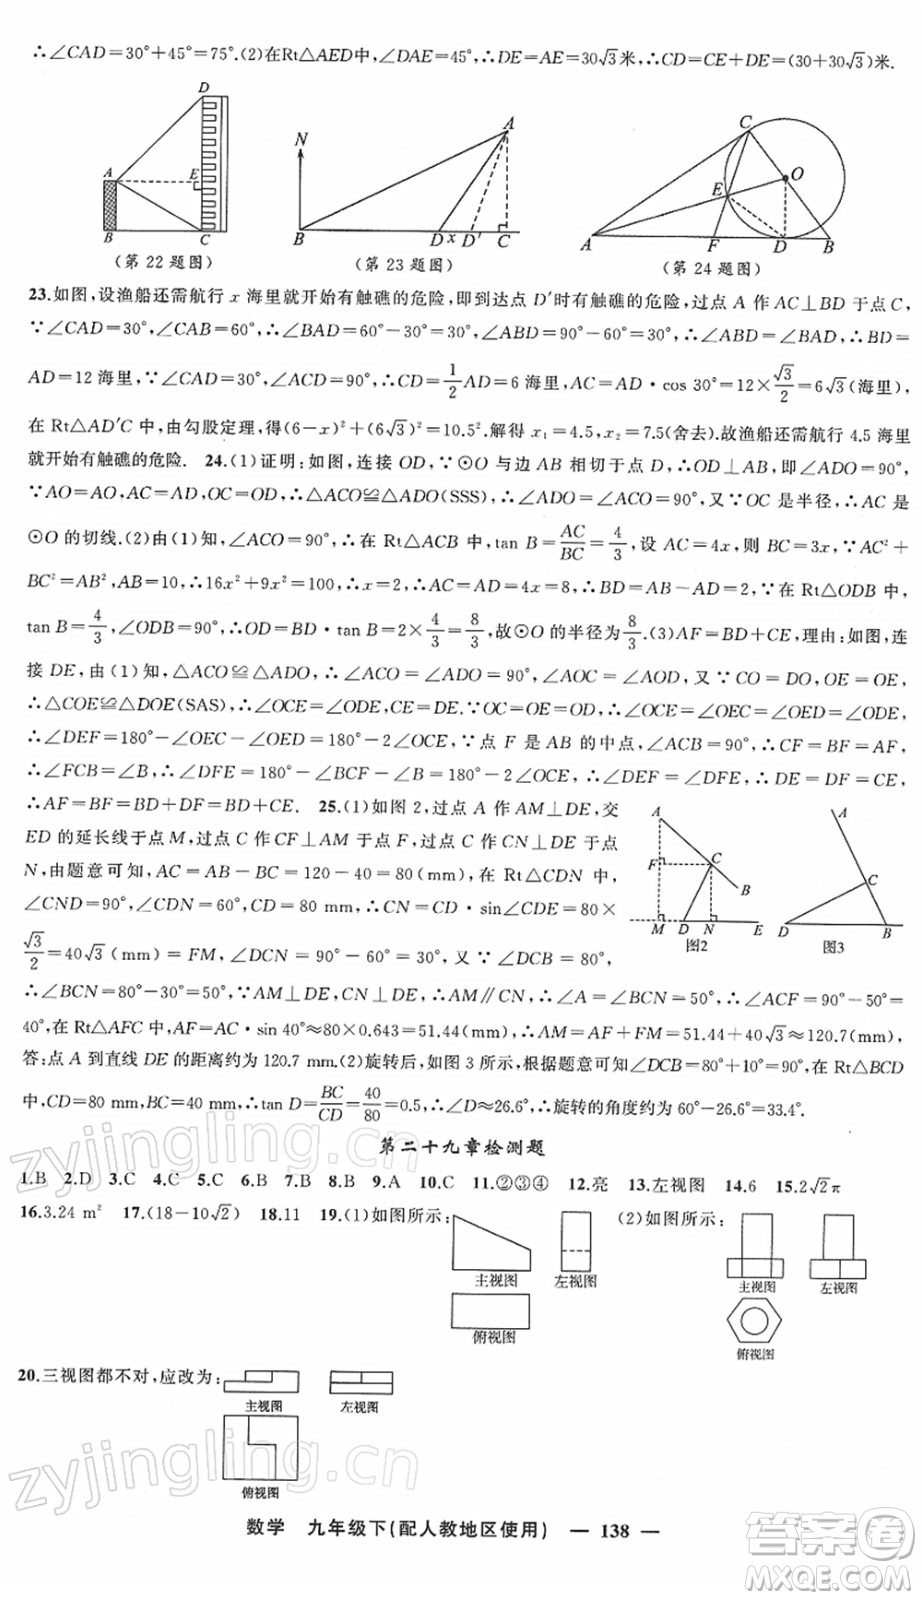 ∴∠CAD=30°+45°=75°.(2)在Rt△AED中,∠DAE=45°,∴DE=AE=30√3米,∴CD=CE+DE=(30+30√3)米.
D
A
E
B
C
(第 22 题图)
N
A
B
D
x
D′
C
(第 23 题图)
C
O
E
A
F
D
B
(第 24 题图)
23.如图,设渔船还需航行 x 海里就开始有触礁的危险,即到达点 D′时有触礁的危险,过点 A 作 AC⊥BD 于点 C,
∵∠CAD=30°,∠CAB=60°,∴∠BAD=60°-30°=30°,∠ABD=90°-60°=30°,∴∠ABD=∠BAD,∴BD=
AD=12 海里,∵∠CAD=30°,∠ACD=90°,∴CD=1/2AD=6 海里,AC=AD·cos 30°=12×√3/2=6√3(海里),
在 Rt△AD′C 中,由勾股定理,得(6-x)²+(6√3)²=10.5².解得 x₁=4.5,x₂=7.5(舍去).故渔船还需航行 4.5 海里
就开始有触礁的危险. 24.(1)证明:如图,连接 OD,∵⊙O 与边 AB 相切于点 D,∴OD⊥AB,即∠ADO=90°,
∵AO=AO,AC=AD,OC=OD,∴△ACO≌△ADO(SSS),∴∠ADO=∠ACO=90°,又∵OC 是半径,∴AC 是
⊙O 的切线.(2)由(1)知,∠ACO=90°,∴在 Rt△ACB 中,tan B=AC/BC=4/3,设 AC=4x,则 BC=3x,∵AC²+
BC²=AB²,AB=10,∴16x²+9x²=100,∴x=2,∴AC=AD=4x=8,∴BD=AB-AD=2,∵在 Rt△ODB 中,
tan B=4/3,∠ODB=90°,∴OD=BD·tan B=2×4/3=8/3,故⊙O 的半径为8/3.(3)AF=BD+CE,理由:如图,连
接 DE,由(1)知,△ACO≌△ADO,∴∠ACO=∠ADO=90°,∠AOC=∠AOD,又∵CO=DO,OE=OE,
∴△COE≌△DOE(SAS),∴∠OCE=∠ODE,CE=DE.∵OC=OE=OD,∴∠OCE=∠OEC=∠OED=∠ODE,
∴∠DEF=180°-∠OEC-∠OED=180°-2∠OCE,∵点 F 是 AB 的中点,∠ACB=90°,∴CF=BF=AF,
∴∠FCB=∠B,∴∠DFE=180°-∠BCF-∠B=180°-2∠OCE,∴∠DEF=∠DFE,∴DE=DF=CE,
∴AF=BF=BD+DF=BD+CE. 25.(1)如图 2,过点 A 作 AM⊥DE,交
ED 的延长线于点 M,过点 C 作 CF⊥AM 于点 F,过点 C 作 CN⊥DE 于点
N,由题意可知,AC=AB-BC=120-40=80(mm),在 Rt△CDN 中,
∠CND=90°,∠CDN=60°,CD=80 mm,∴CN=CD·sin∠CDE=80×
√3/2=40√3(mm)=FM,∠DCN=90°-60°=30°,又∵∠DCB=80°,
A
F
C
B
M
D
N
E
图2
A
C
D
B
图3
∴∠BCN=80°-30°=50°,∵AM⊥DE,CN⊥DE,∴AM∥CN,∴∠A=∠BCN=50°,∴∠ACF=90°-50°=
40°,在 Rt△AFC 中,AF=AC·sin 40°≈80×0.643=51.44(mm),∴AM=AF+FM=51.44+40√3≈120.7(mm),
答:点 A 到直线 DE 的距离约为 120.7 mm.(2)旋转后,如图 3 所示,根据题意可知∠DCB=80°+10°=90°,在 Rt△BCD
中,CD=80 mm,BC=40 mm,∴tan D=BC/CD=40/80=0.5,∴∠D≈26.6°,∴旋转的角度约为 60°-26.6°=33.4°.
第二十九章检测题
1.B 2.D 3.C 4.C 5.C 6.B 7.B 8.B 9.A 10.C 11.②③④ 12.亮 13.左视图 14.6 15.2√2π
16.3.24 m² 17.(18-10√2) 18.11 19.(1)如图所示: (2)如图所示:
主视图
左视图
俯视图
主视图
左视图
俯视图
20.三视图都不对,应改为:
主视图
左视图
俯视图
数学 九年级下(配人教地区使用) — 138 —
zyjingling.cn
zyjingling.cn
答案圈
MXQE.COM